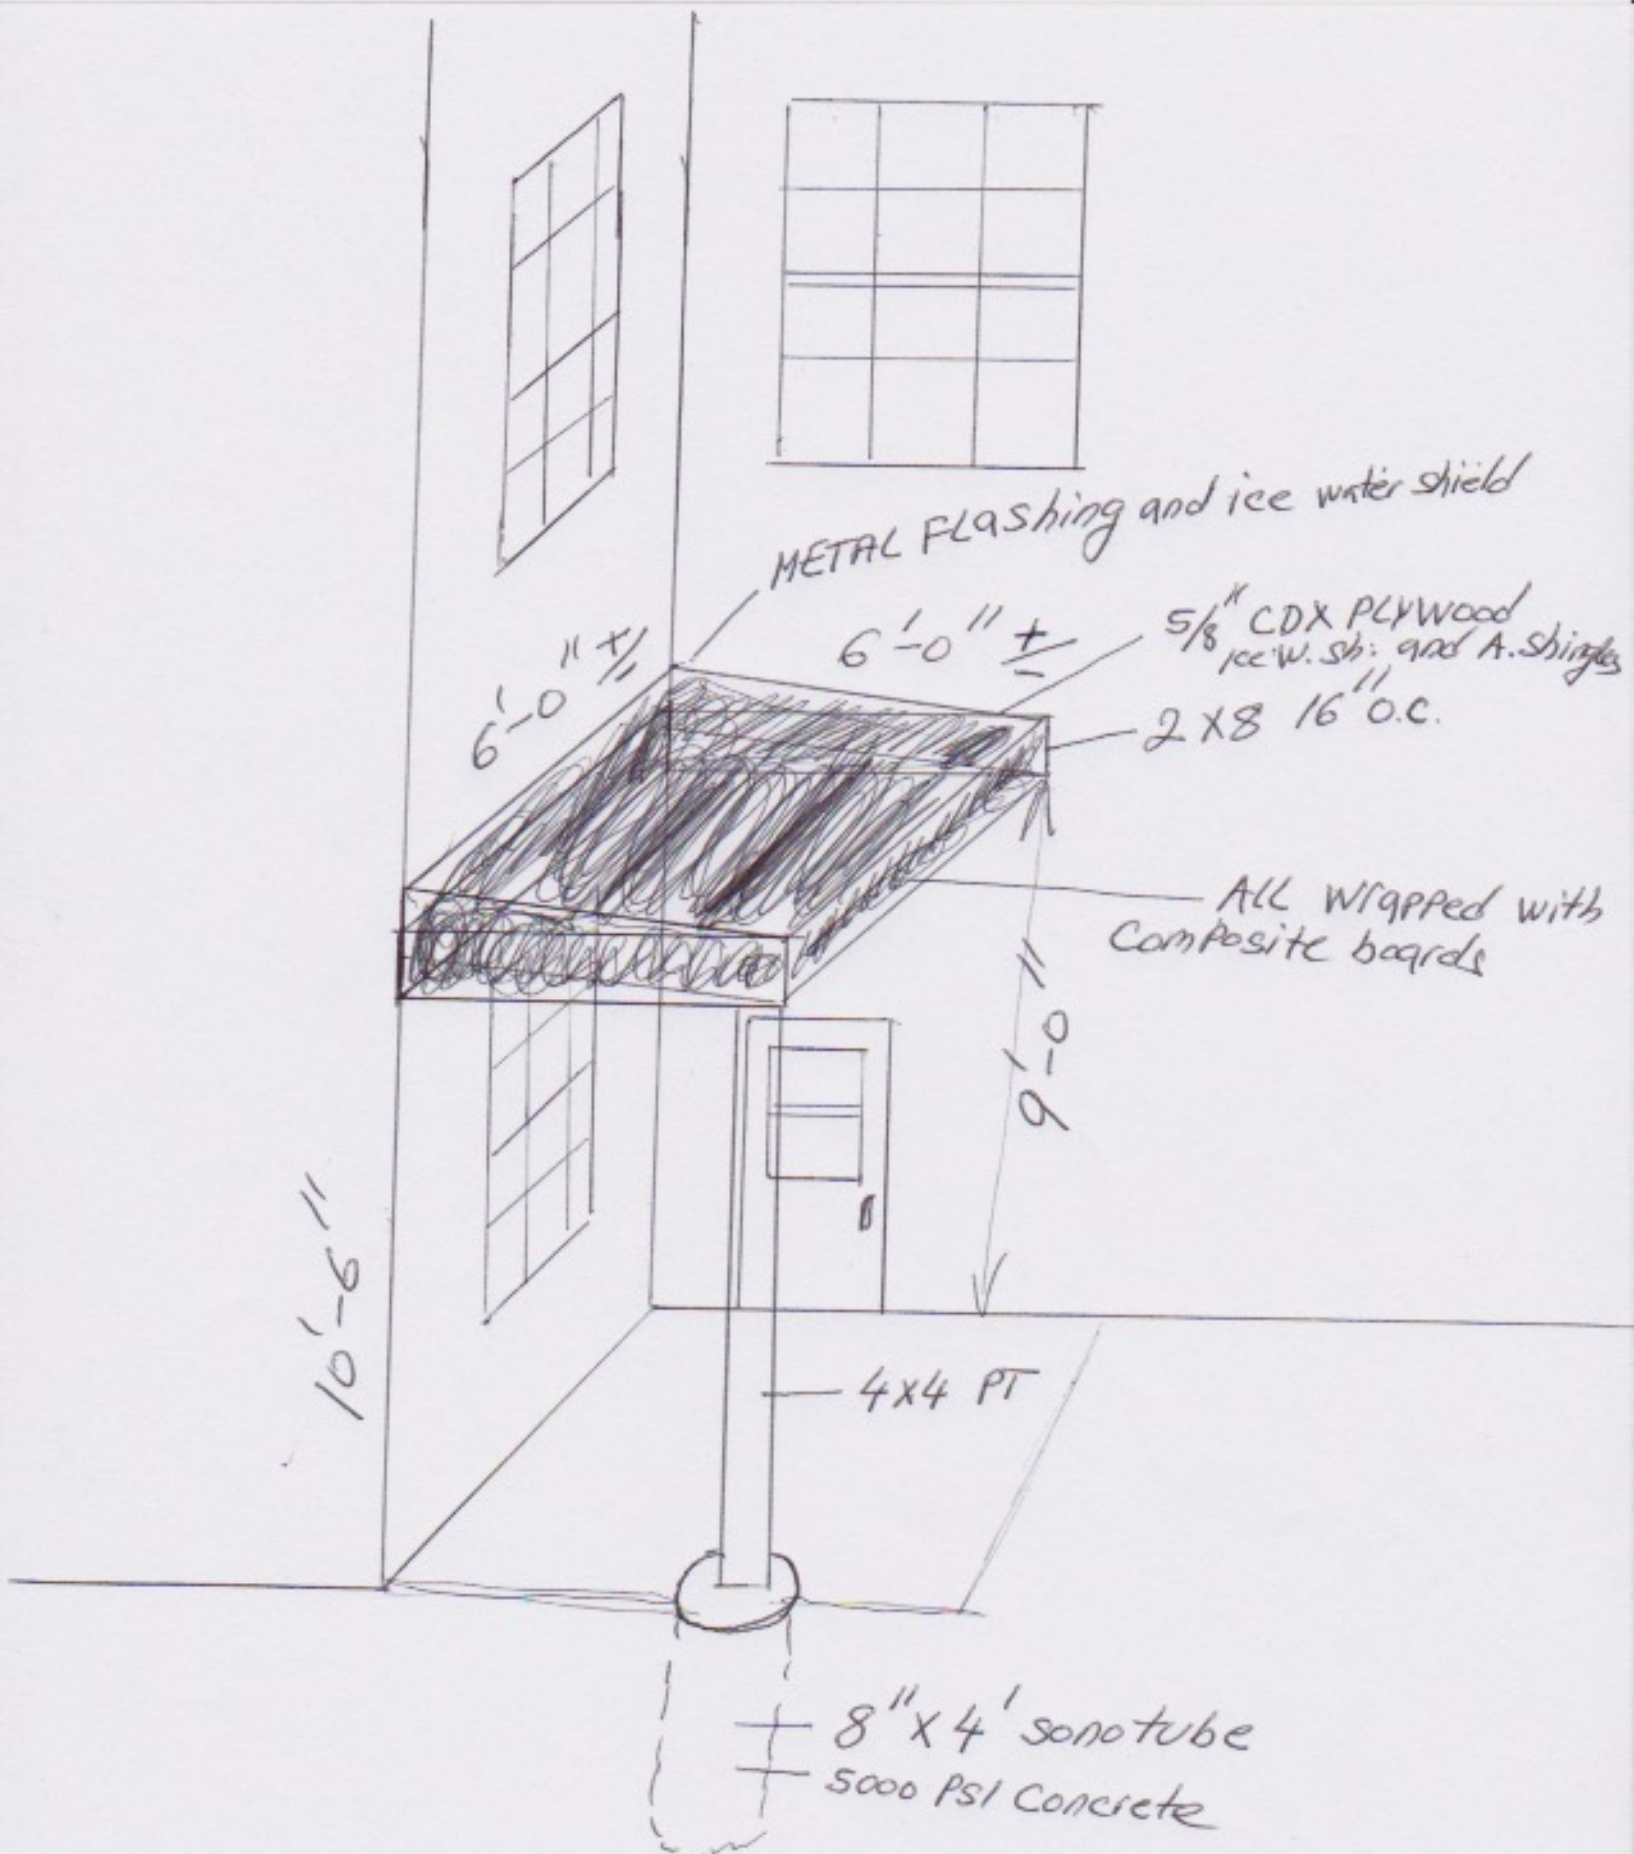 METAL FLashing and ice water shield
6'-0" +/-
6'-0" +/-
5/8" CDX PLYWOOD
ice W. sh: and A. Shingles
2X8 16" O.C.
ALL Wrapped with
Composite boards
9'-0"
10'-6"
4X4 PT
8"X4' sonotube
5000 PSI Concrete